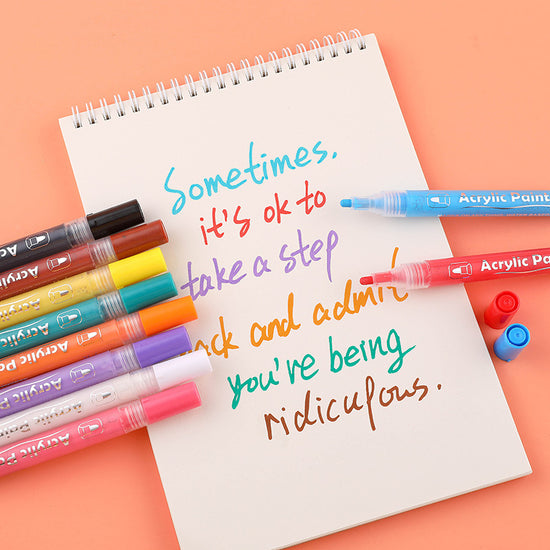 Sometimes.
it's ok to
take a step
ack and admit
you're being
ridiculous.
Acrylic Paint
Acrylic Pa
A
Acrylic
Acrylic
Acrylic
Acrylic Pa
Acrylic Pa
Acrylic Pain
Acrylic Pa